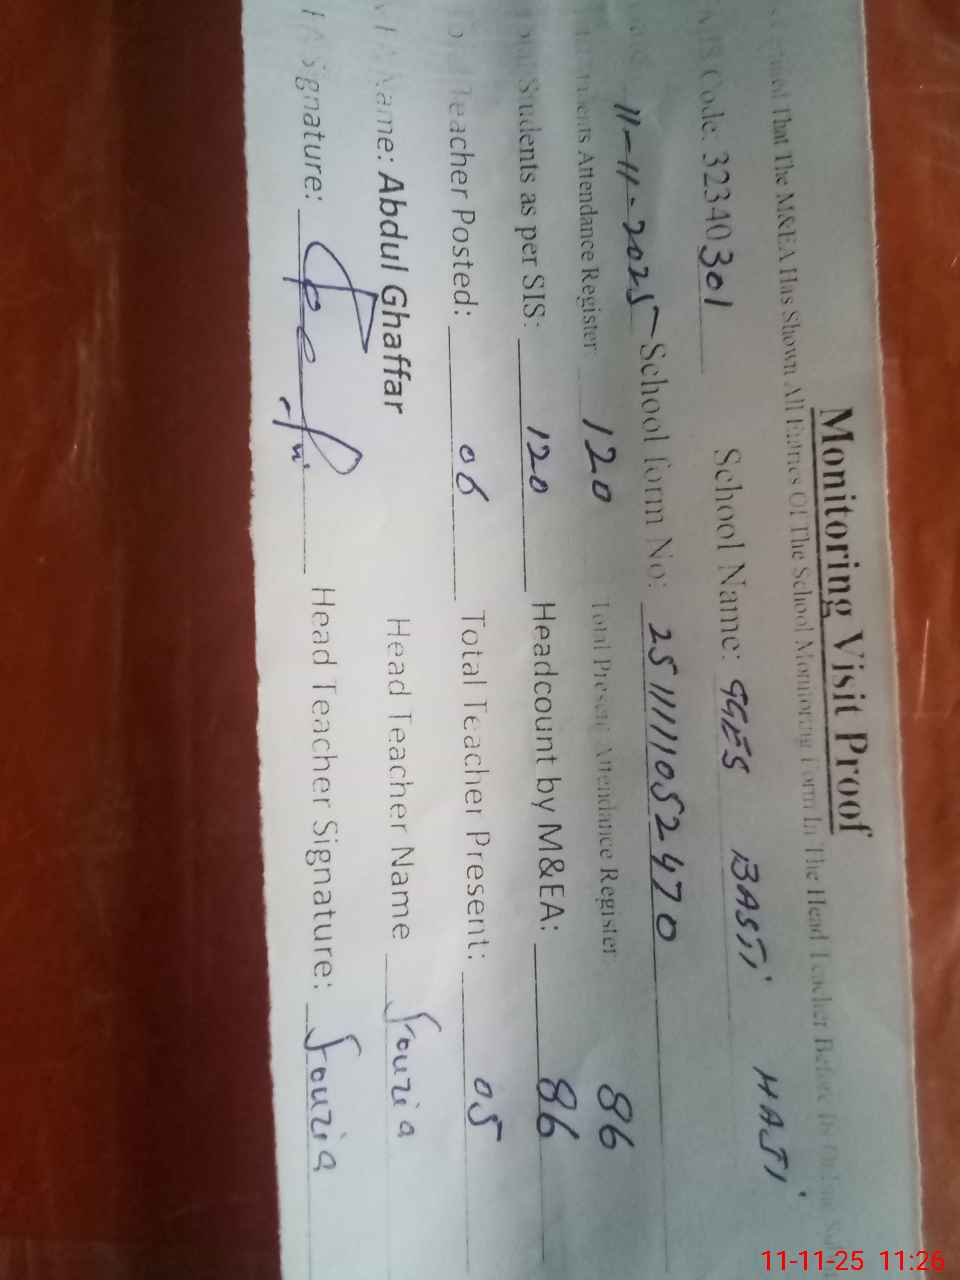 Monitoring Visit Proof
That The M&EA Has Shown All Entries Of The School Monitoring Form In The Head Teacher Before Its
Code: 32340301 School Name: GGES BASTI HAJI
11-11-2025 School form No: 251111052470
Attendance Register 120 Total Present Attendance Register 86
Students as per SIS: 120 Headcount by M&EA: 86
Teacher Posted: 06 Total Teacher Present: 05
Name: Abdul Ghaffar Head Teacher Name Fouzia
Signature: Head Teacher Signature: Fouzia
11-11-25 11:26